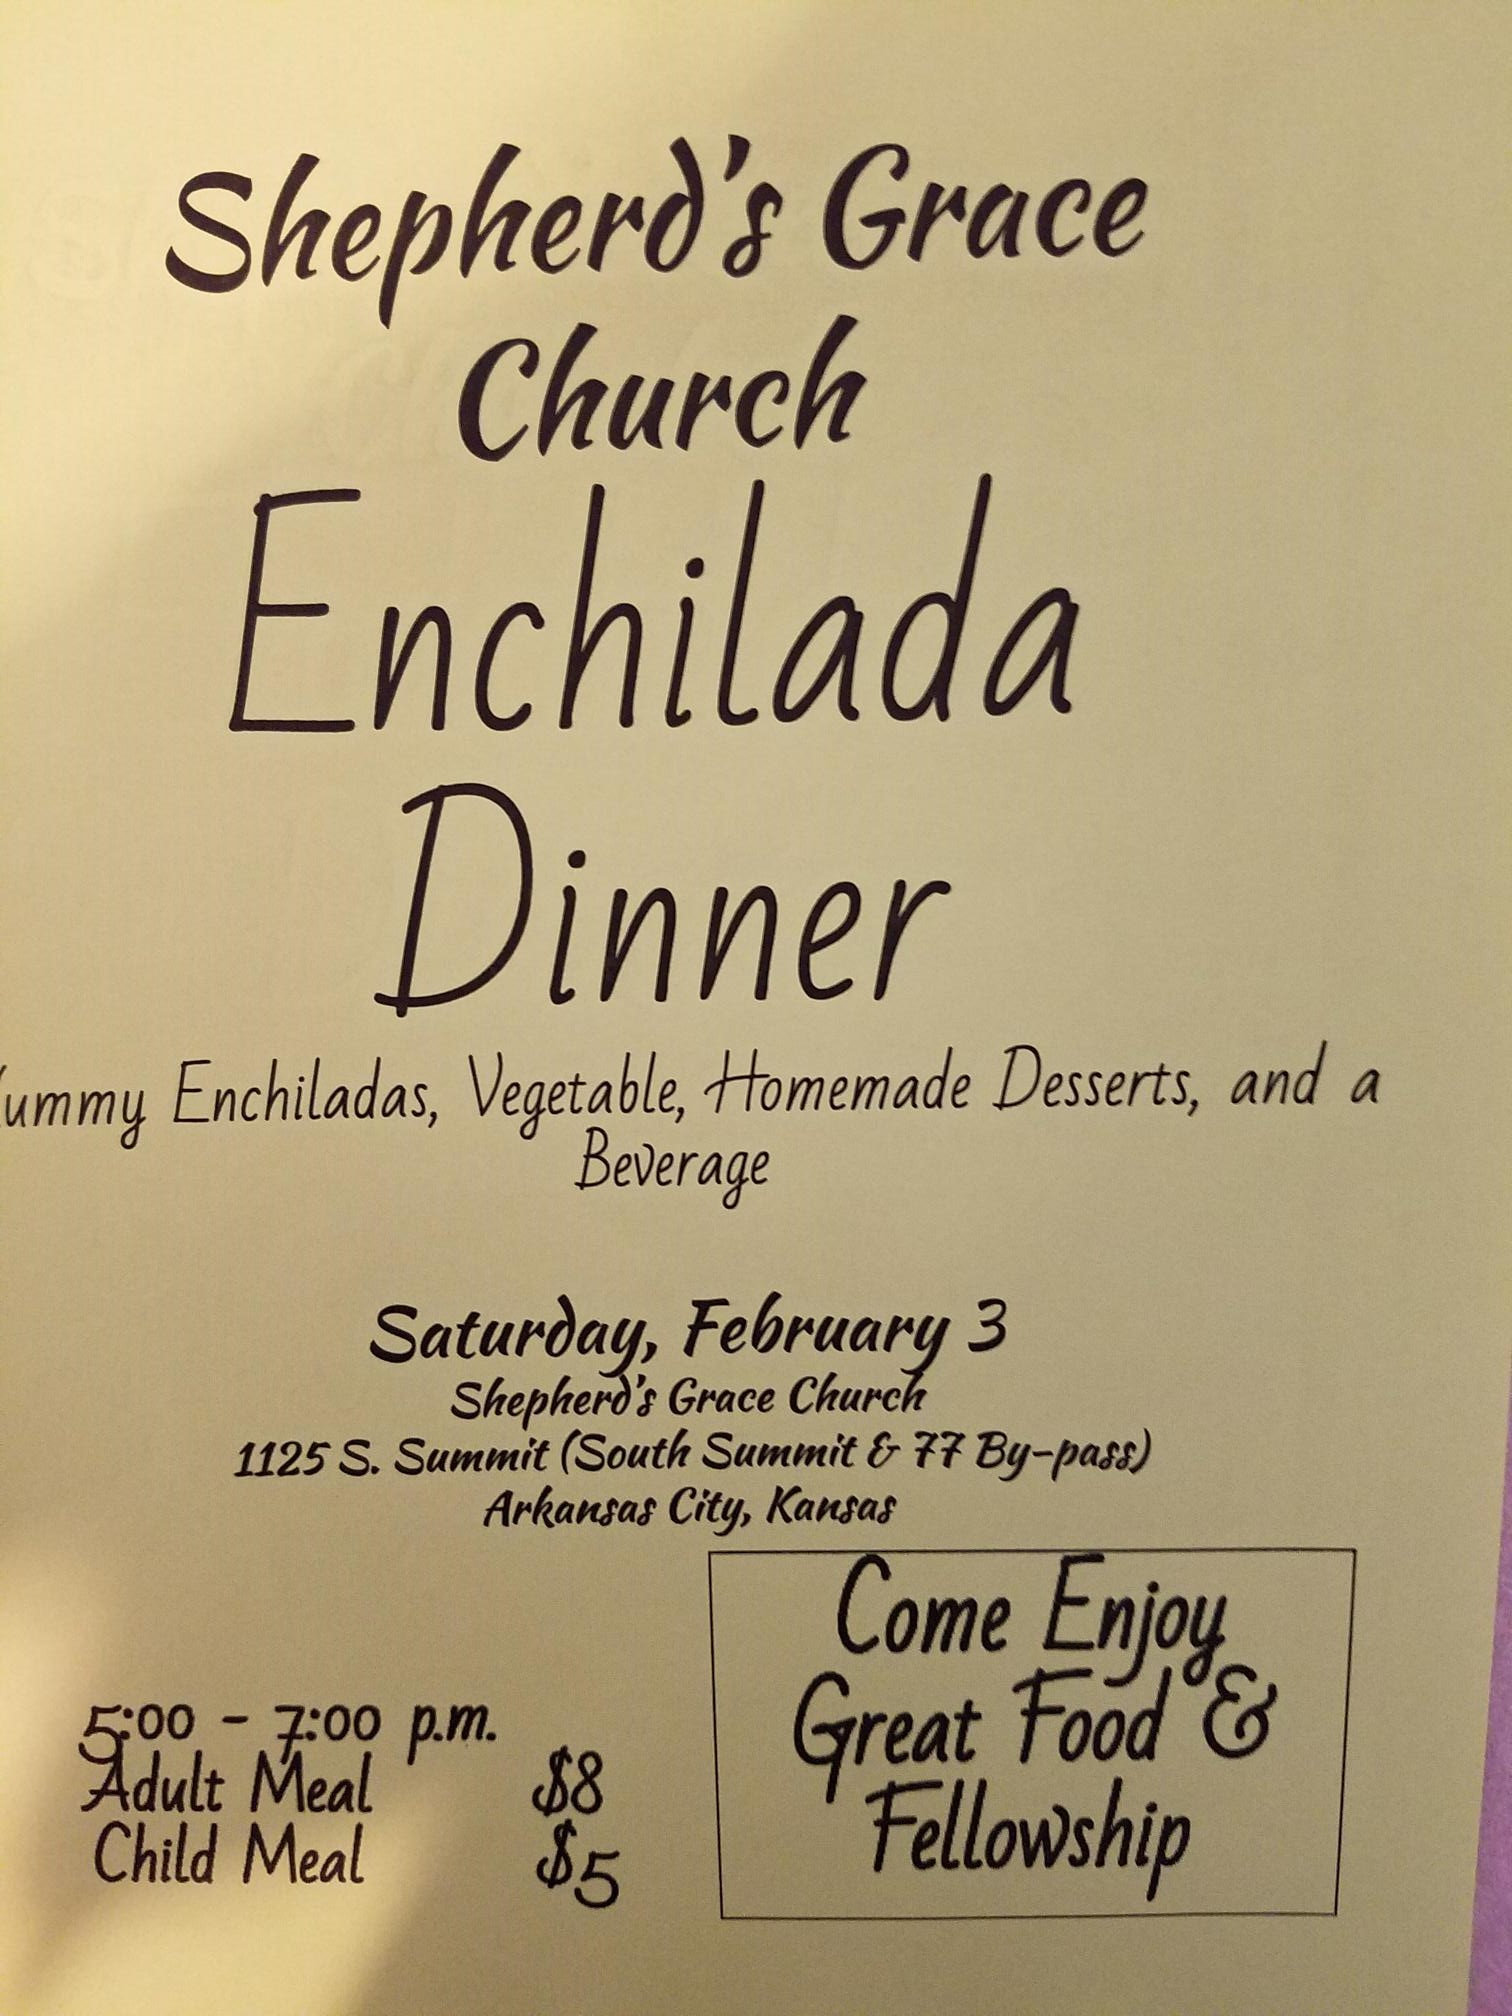 Shepherd's Grace
Church
Enchilada
Dinner
Yummy Enchiladas, Vegetable, Homemade Desserts, and a
Beverage
Saturday, February 3
Shepherd's Grace Church
1125 S. Summit (South Summit & 77 By-pass)
Arkansas City, Kansas
5:00 - 7:00 p.m.
Adult Meal $8
Child Meal $5
Come Enjoy
Great Food &
Fellowship